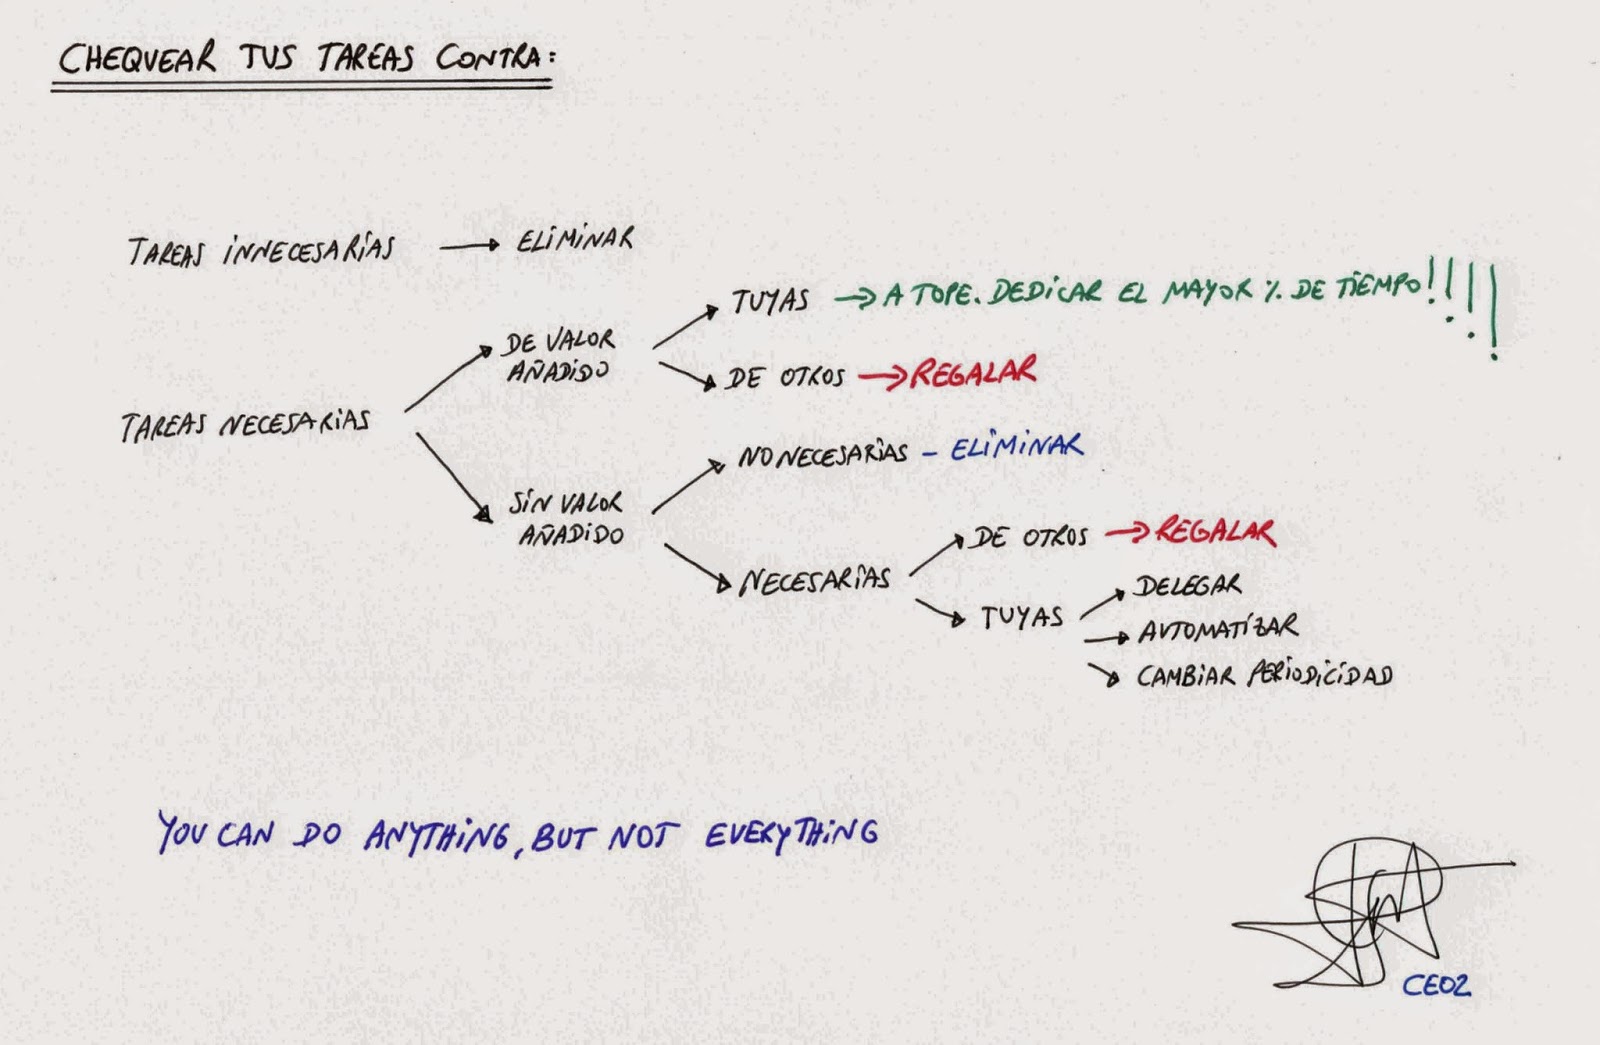 CHEQUEAR TUS TAREAS CONTRA:
TAREAS INNECESARIAS → ELIMINAR
TUYAS → A TOPE. DEDICAR EL MAYOR % DE TIEMPO!!!!
DE VALOR
AÑADIDO
DE OTROS → REGALAR
TAREAS NECESARIAS
NO NECESARIAS – ELIMINAR
SIN VALOR
AÑADIDO
DE OTROS → REGALAR
NECESARIAS
DELEGAR
TUYAS
AUTOMATIZAR
CAMBIAR PERIODICIDAD
YOU CAN DO ANYTHING, BUT NOT EVERYTHING
CEO2